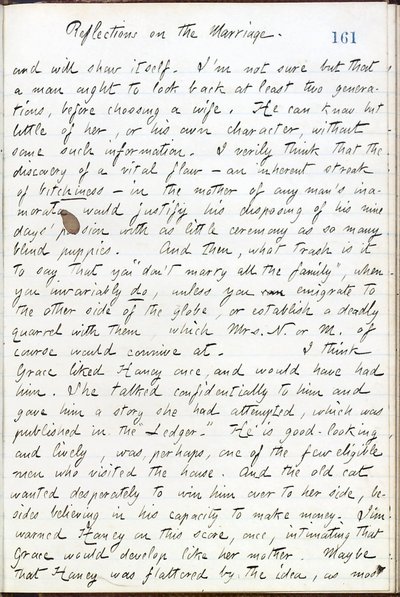 Reflections on the Marriage.
161
and will show itself. I'm not sure but that
a man ought to look back at least two genera-
tions, before choosing a wife. He can know but
little of her, or his own character, without
some such information. I verily think that the
discovery of a vital flaw — an inherent streak
of bitchiness — in the mother of any man's ina-
morata would justify his disposing of his nine
days' passion with as little ceremony as so many
blind puppies. And then, what trash is it
to say that you "don't marry all the family", when
you invariably do, unless you emigrate to
the other side of the globe, or establish a deadly
quarrel with them, which Mrs. N. or M. of
course would connive at. I think
Grace liked Haney once, and would have had
him. She talked confidentially to him and
gave him a story she had attempted, which was
published in the "Ledger." He is good-looking,
and lively, was, perhaps, one of the few eligible
men who visited the house. And the old cat
wanted desperately to win him over to her side, be-
sides believing in his capacity to make money. Jim
warned Haney on this score, once, intimating that
Grace would develop like her mother. Maybe
that Haney was flattered by the idea, as most